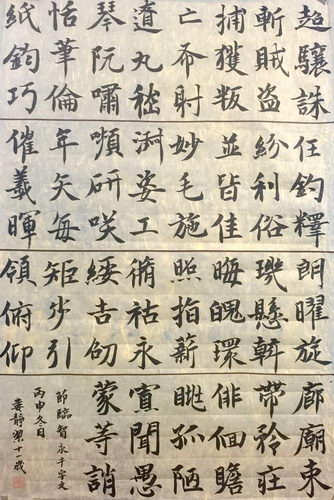 超驤誅
斬賊盜
捕獲叛
亡布射
遼丸嵇
琴阮嘯
恬筆倫
紙鈞巧
任釣釋
紛利俗
並皆佳
妙毛施
淑姿工
嚬研咲
年矢每
催羲暉
朗曜旋
璣懸斡
晦魄環
照指薪
脩祜永
綏吉劭
矩步引
領俯仰
廊廟束
帶矜莊
俳佪瞻
眺孤陋
寡聞愚
蒙等誚
節臨智永千字文
丙申冬日
婁靜潔十一歲